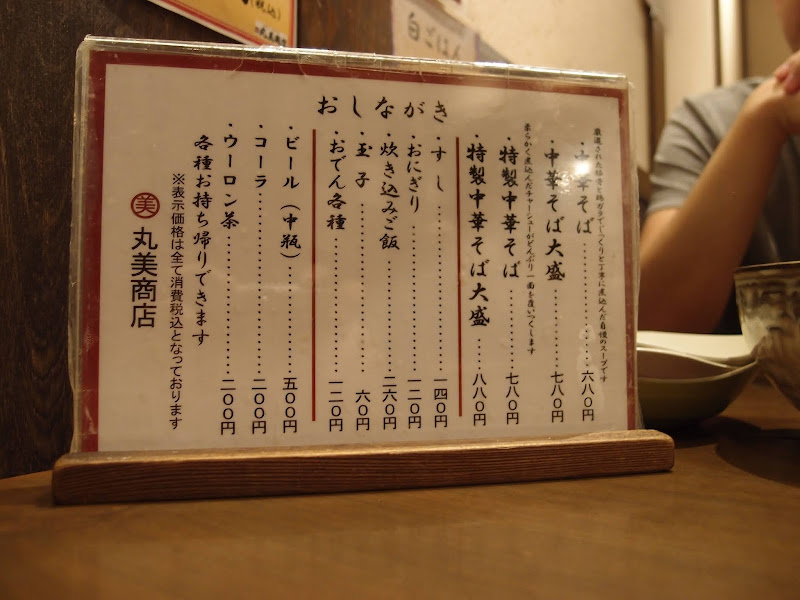 白ごはん
おしながき
厳選された豚骨と鶏ガラでじっくりと丁寧に煮込んだ自慢のスープです
・中華そば……六八〇円
・中華そば大盛……七八〇円
柔らかく煮込んだチャーシューがどんぶり一面を覆いつくします
・特製中華そば……七八〇円
・特製中華そば大盛……八八〇円
・すし……一四〇円
・おにぎり……一二〇円
・炊き込みご飯……二六〇円
・玉子……六〇円
・おでん各種……一二〇円
・ビール（中瓶）……五〇〇円
・コーラ……二〇〇円
・ウーロン茶……二〇〇円
各種お持ち帰りできます
※表示価格は全て消費税込となっております
美 丸美商店